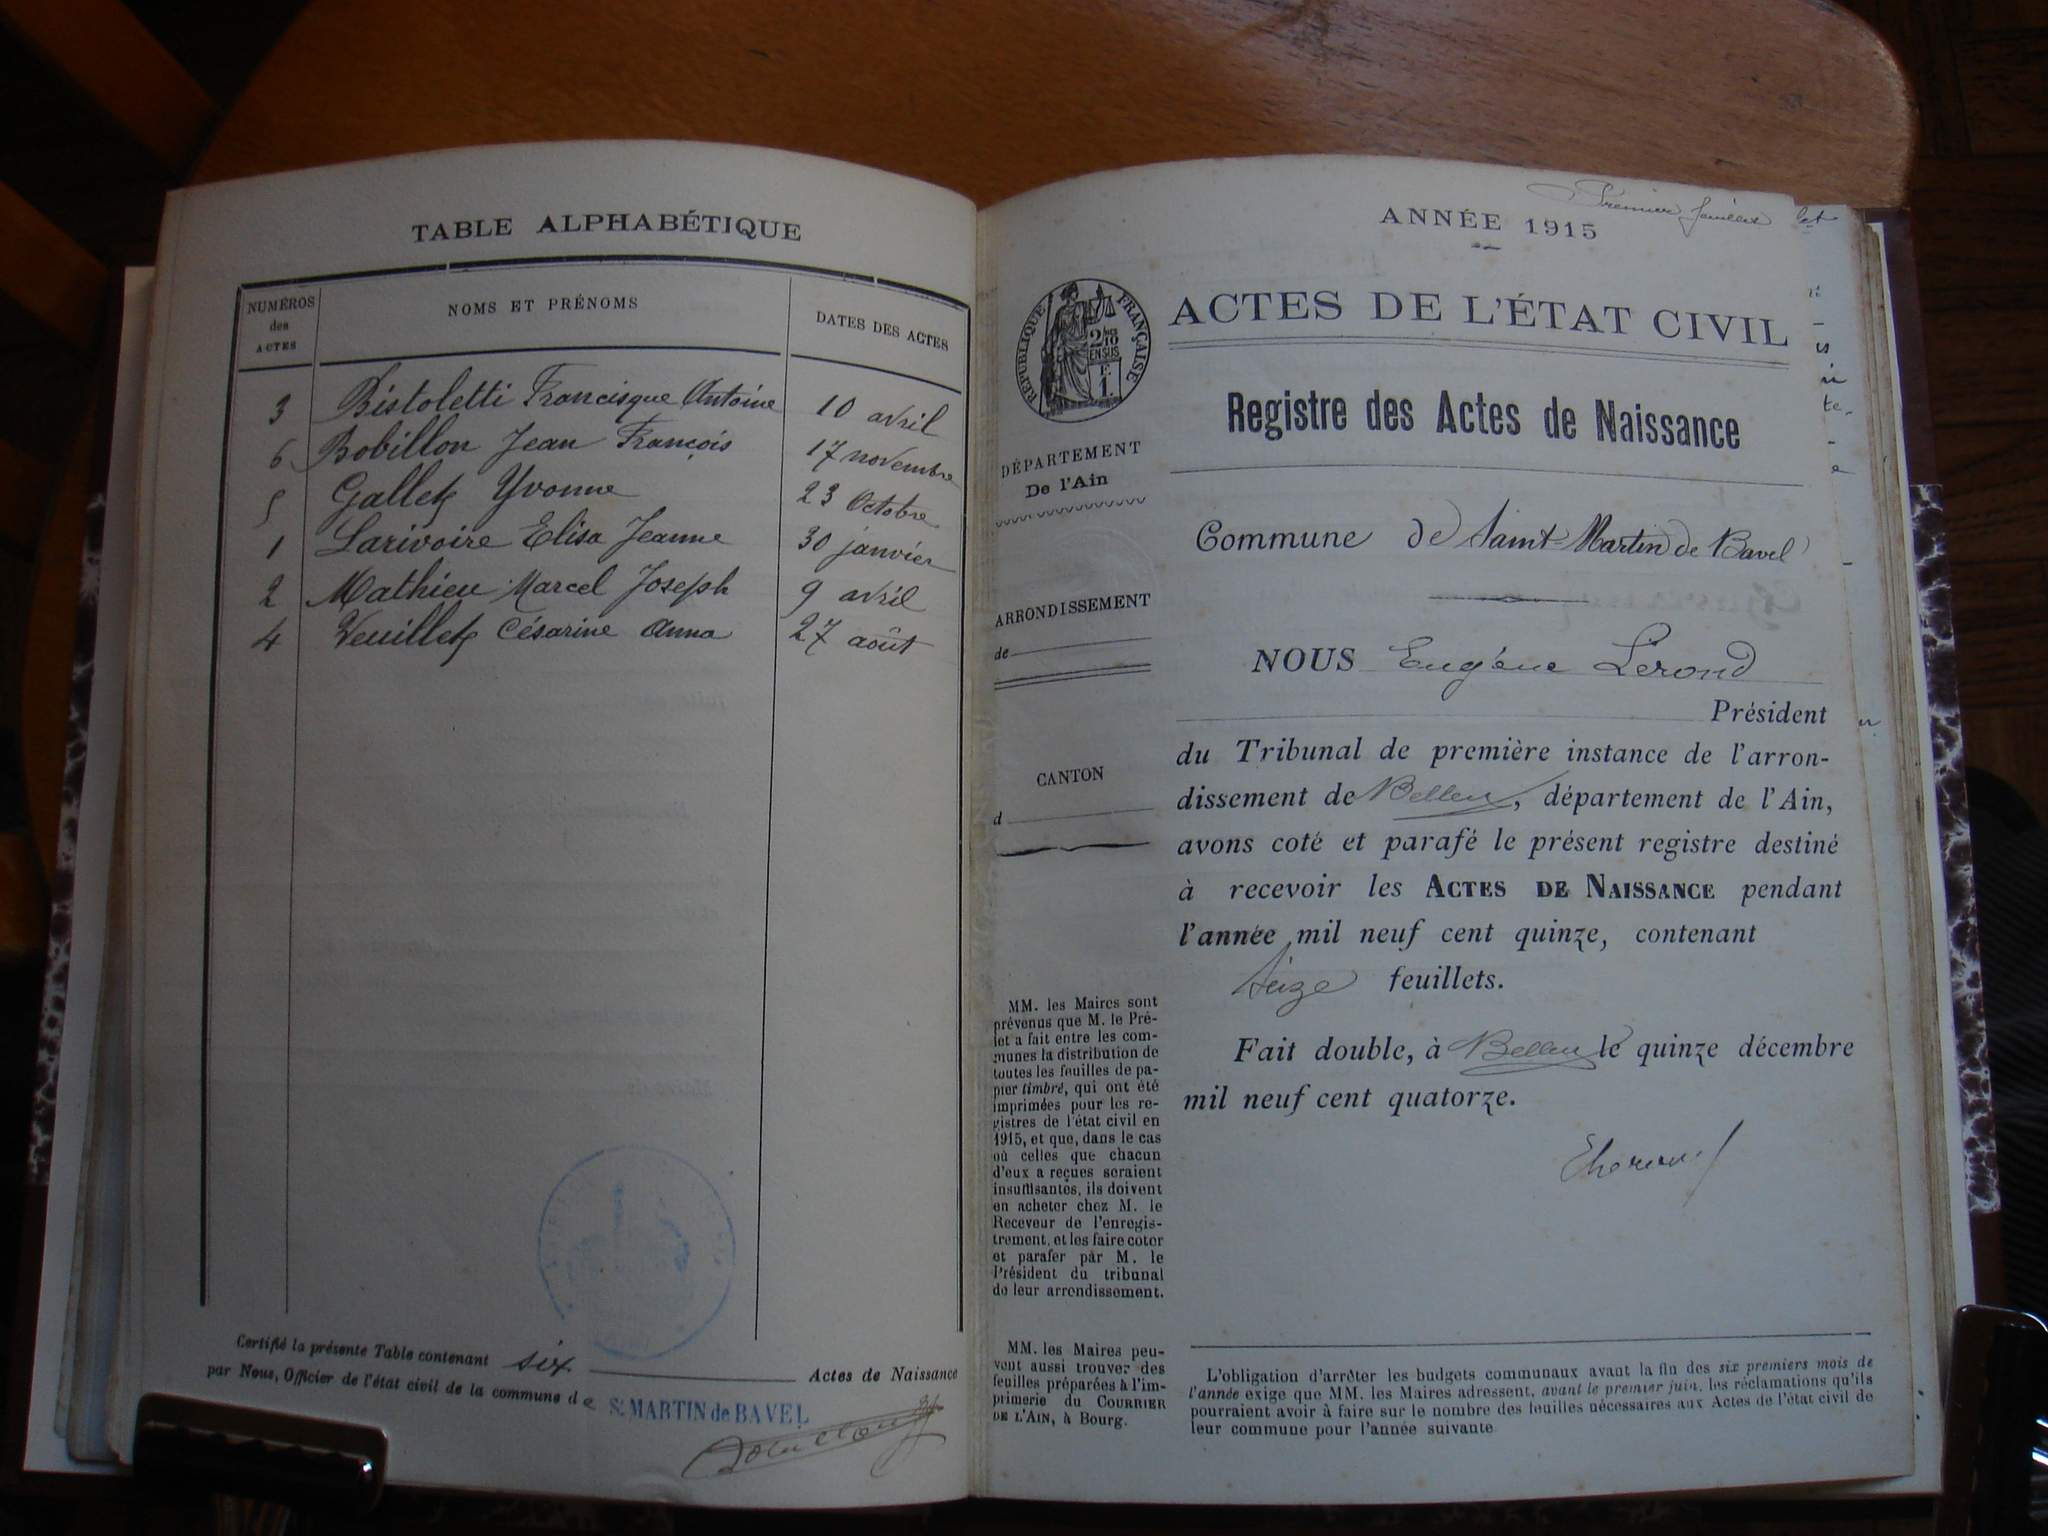 TABLE ALPHABÉTIQUE
NUMÉROS des ACTES
NOMS ET PRÉNOMS
DATES DES ACTES
3 Bistoletti Francisque Antoine 10 avril
6 Bobillon Jean François 17 novembre
5 Gallet Yvonne 23 Octobre
1 Larivoire Elisa Jeanne 30 janvier
2 Mathieu Marcel Joseph 9 avril
4 Veuillet Césarine Anna 27 août
Certifié la présente Table contenant six Actes de Naissance
par Nous, Officier de l'état civil de la commune de St MARTIN de BAVEL
Premier feuillet
ANNÉE 1915
RÉPUBLIQUE FRANÇAISE
2/10 EN SUS
ACTES DE L'ÉTAT CIVIL
Registre des Actes de Naissance
DÉPARTEMENT
De l'Ain
Commune de Saint Martin de Bavel
ARRONDISSEMENT
de
CANTON
d
NOUS Eugène Lerond
Président
du Tribunal de première instance de l'arron-
dissement de Belley, département de l'Ain,
avons coté et parafé le présent registre destiné
à recevoir les ACTES DE NAISSANCE pendant
l'année mil neuf cent quinze, contenant
Seize feuillets.
Fait double, à Belley le quinze décembre
mil neuf cent quatorze.
MM. les Maires sont
prévenus que M. le Pré-
fet a fait entre les com-
munes la distribution de
toutes les feuilles de pa-
pier timbré, qui ont été
imprimées pour les re-
gistres de l'état civil en
1915, et que, dans le cas
où celles que chacun
d'eux a reçues seraient
insuffisantes, ils doivent
en acheter chez M. le
Receveur de l'enregis-
trement, et les faire coter
et parafer par M. le
Président du tribunal
de leur arrondissement.
MM. les Maires peu-
vent aussi trouver des
feuilles préparées à l'im-
primerie du COURRIER
DE L'AIN, à Bourg.
L'obligation d'arrêter les budgets communaux avant la fin des six premiers mois de
l'année exige que MM. les Maires adressent, avant le premier juin, les réclamations qu'ils
pourraient avoir à faire sur le nombre des feuilles nécessaires aux Actes de l'état civil de
leur commune pour l'année suivante